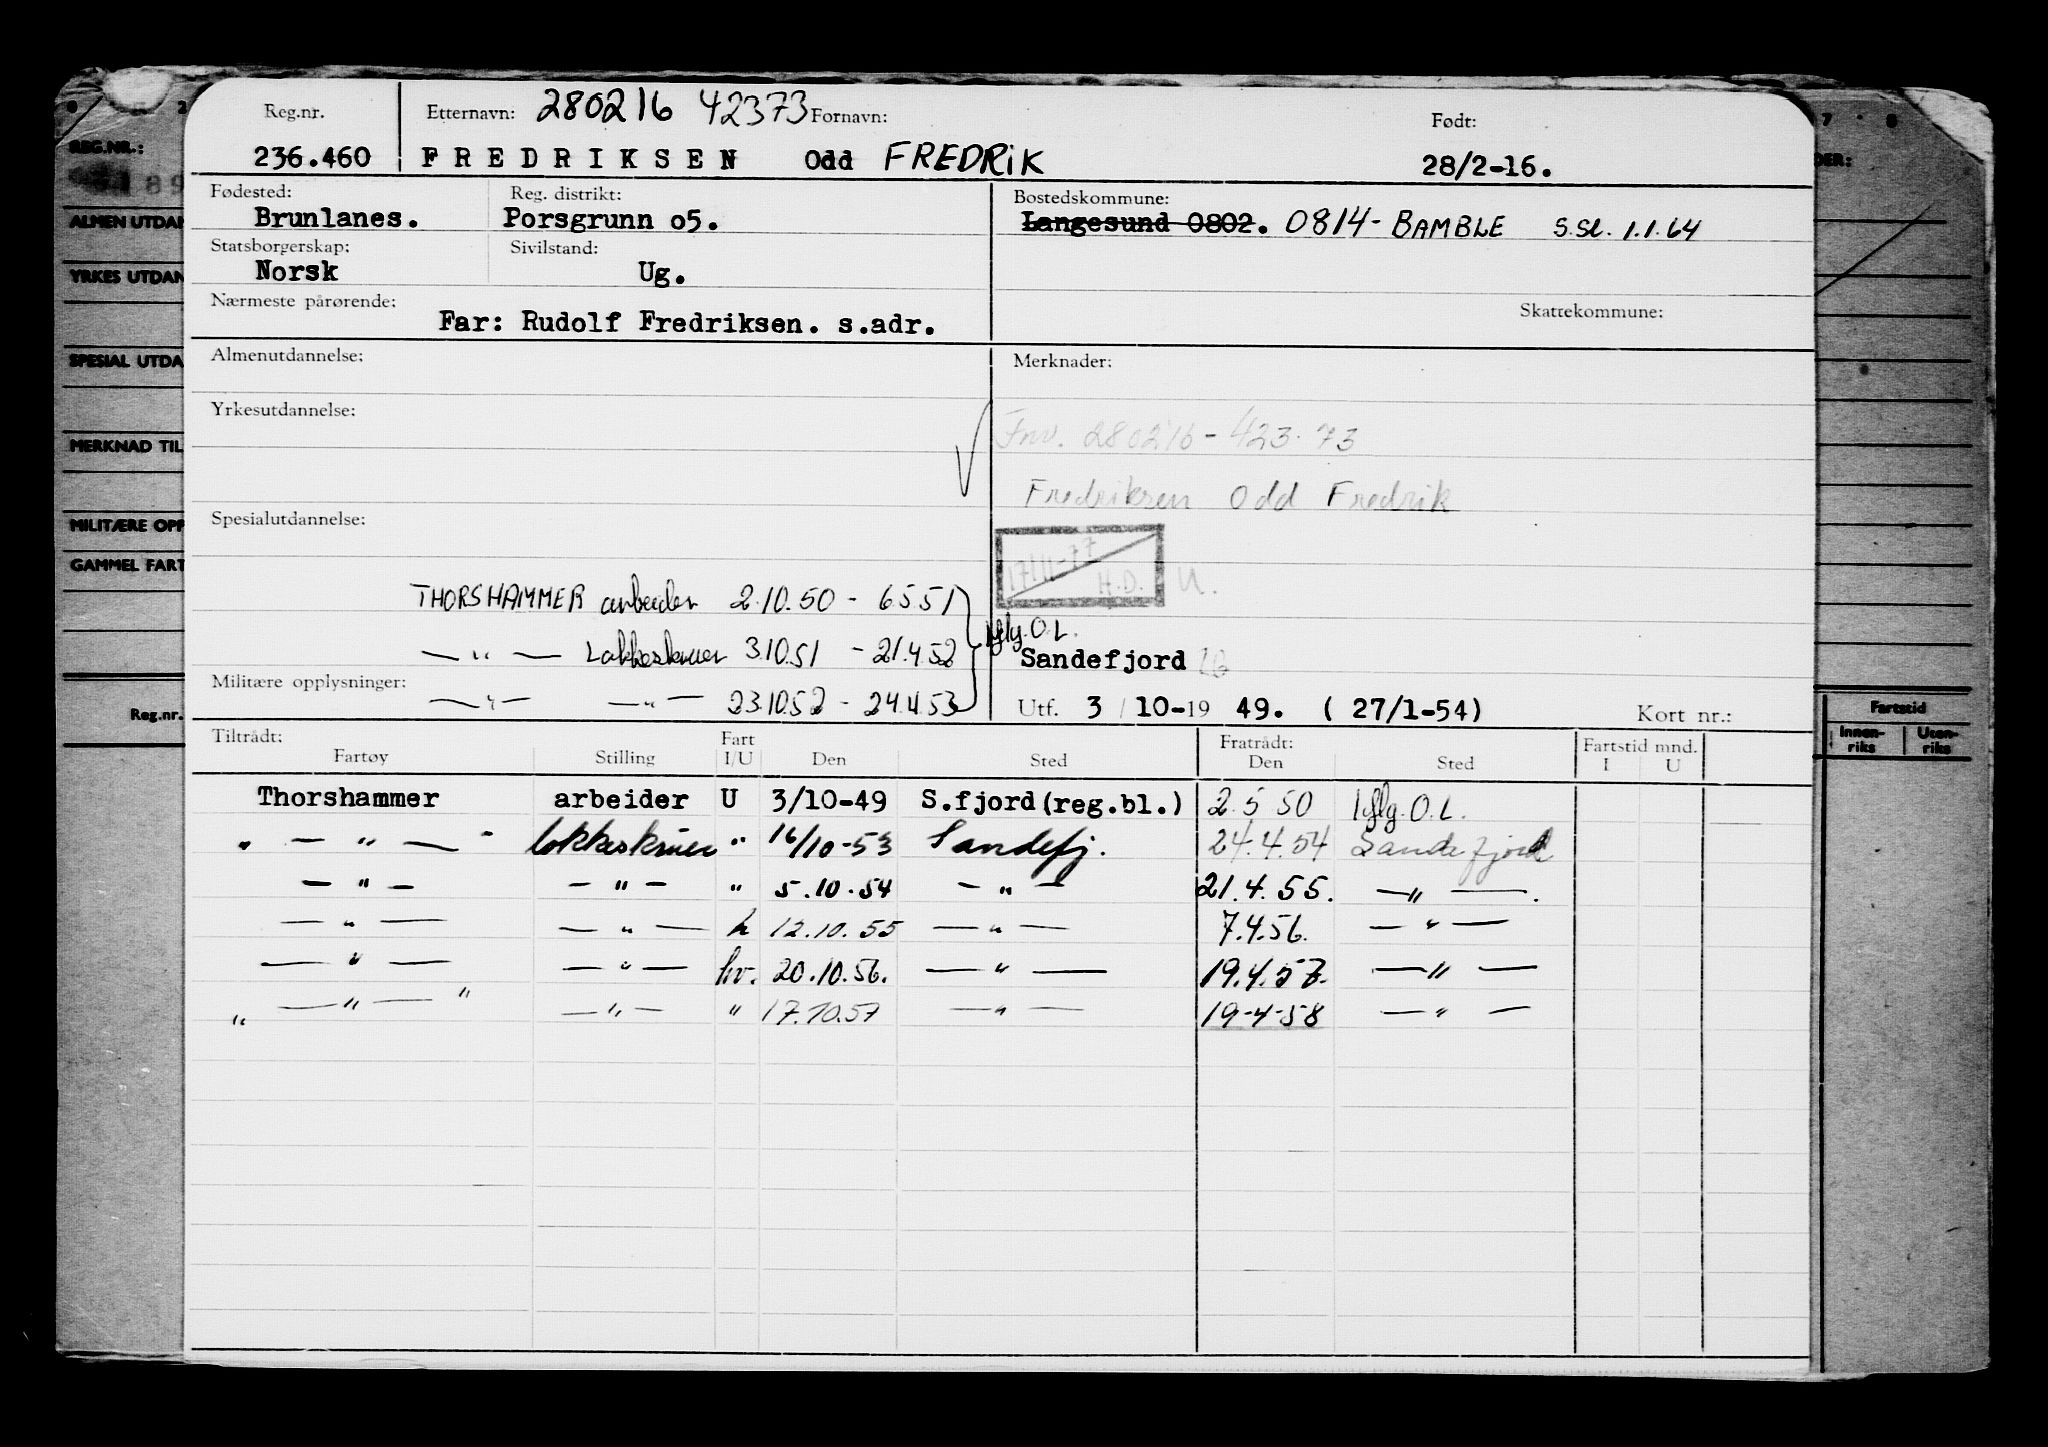 Reg.nr. Etternavn: 280216 42373 Fornavn: Født:
236.460 FREDRIKSEN Odd FREDRIK 28/2-16.
Fødested: Reg. distrikt: Bostedskommune:
Brunlanes. Porsgrunn o5. Langesund 0802. 0814-BAMBLE S.Sl. 1.1.64
Statsborgerskap: Sivilstand:
Norsk Ug.
Nærmeste pårørende: Skattekommune:
Far: Rudolf Fredriksen. s.adr.
Almenutdannelse: Merknader:
Yrkesutdannelse:
Fnr. 280216-423.73
Fredriksen Odd Fredrik
Spesialutdannelse:
17/11-77
H.D. U.
THORSHAMMER arbeider 2.10.50 - 6.5.51
Iflg. O.L.
— " — kokkeskruer 3.10.51 - 21.4.52
Sandefjord
Militære opplysninger:
— " — — " — 23.10.52 - 24.4.53
Utf. 3/10-19 49. (27/1-54) Kort nr.:
Tiltrådt: Fart Fratrådt: Fartstid mnd.
Fartøy Stilling I/U Den Sted Den Sted I U
Thorshammer arbeider U 3/10-49 S.fjord(reg.bl.) 2.5 50 Iflg. O.L.
" — " — " kokkeskruer " 16/10-53 Sandefj. 24.4.54 Sandefjord
— " — — " — " 5.10.54 — " — 21.4.55. — " — .
— " — — " — h 12.10.55 — " — 7.4.56. — " —
— " — — " — hv. 20.10.56. — " — 19.4.57. — " —
" — " — " — " — " 17.10.57 — " — 19-4-58 — " —
REG.NR.:
89
ALMEN UTDAN
YRKES UTDAN
SPESIAL UTDA
MERKNAD TIL
MILITÆRE OPP
GAMMEL FART
Reg.nr.
7 8
DER:
Fartstid
Innen-riks Uten-riks